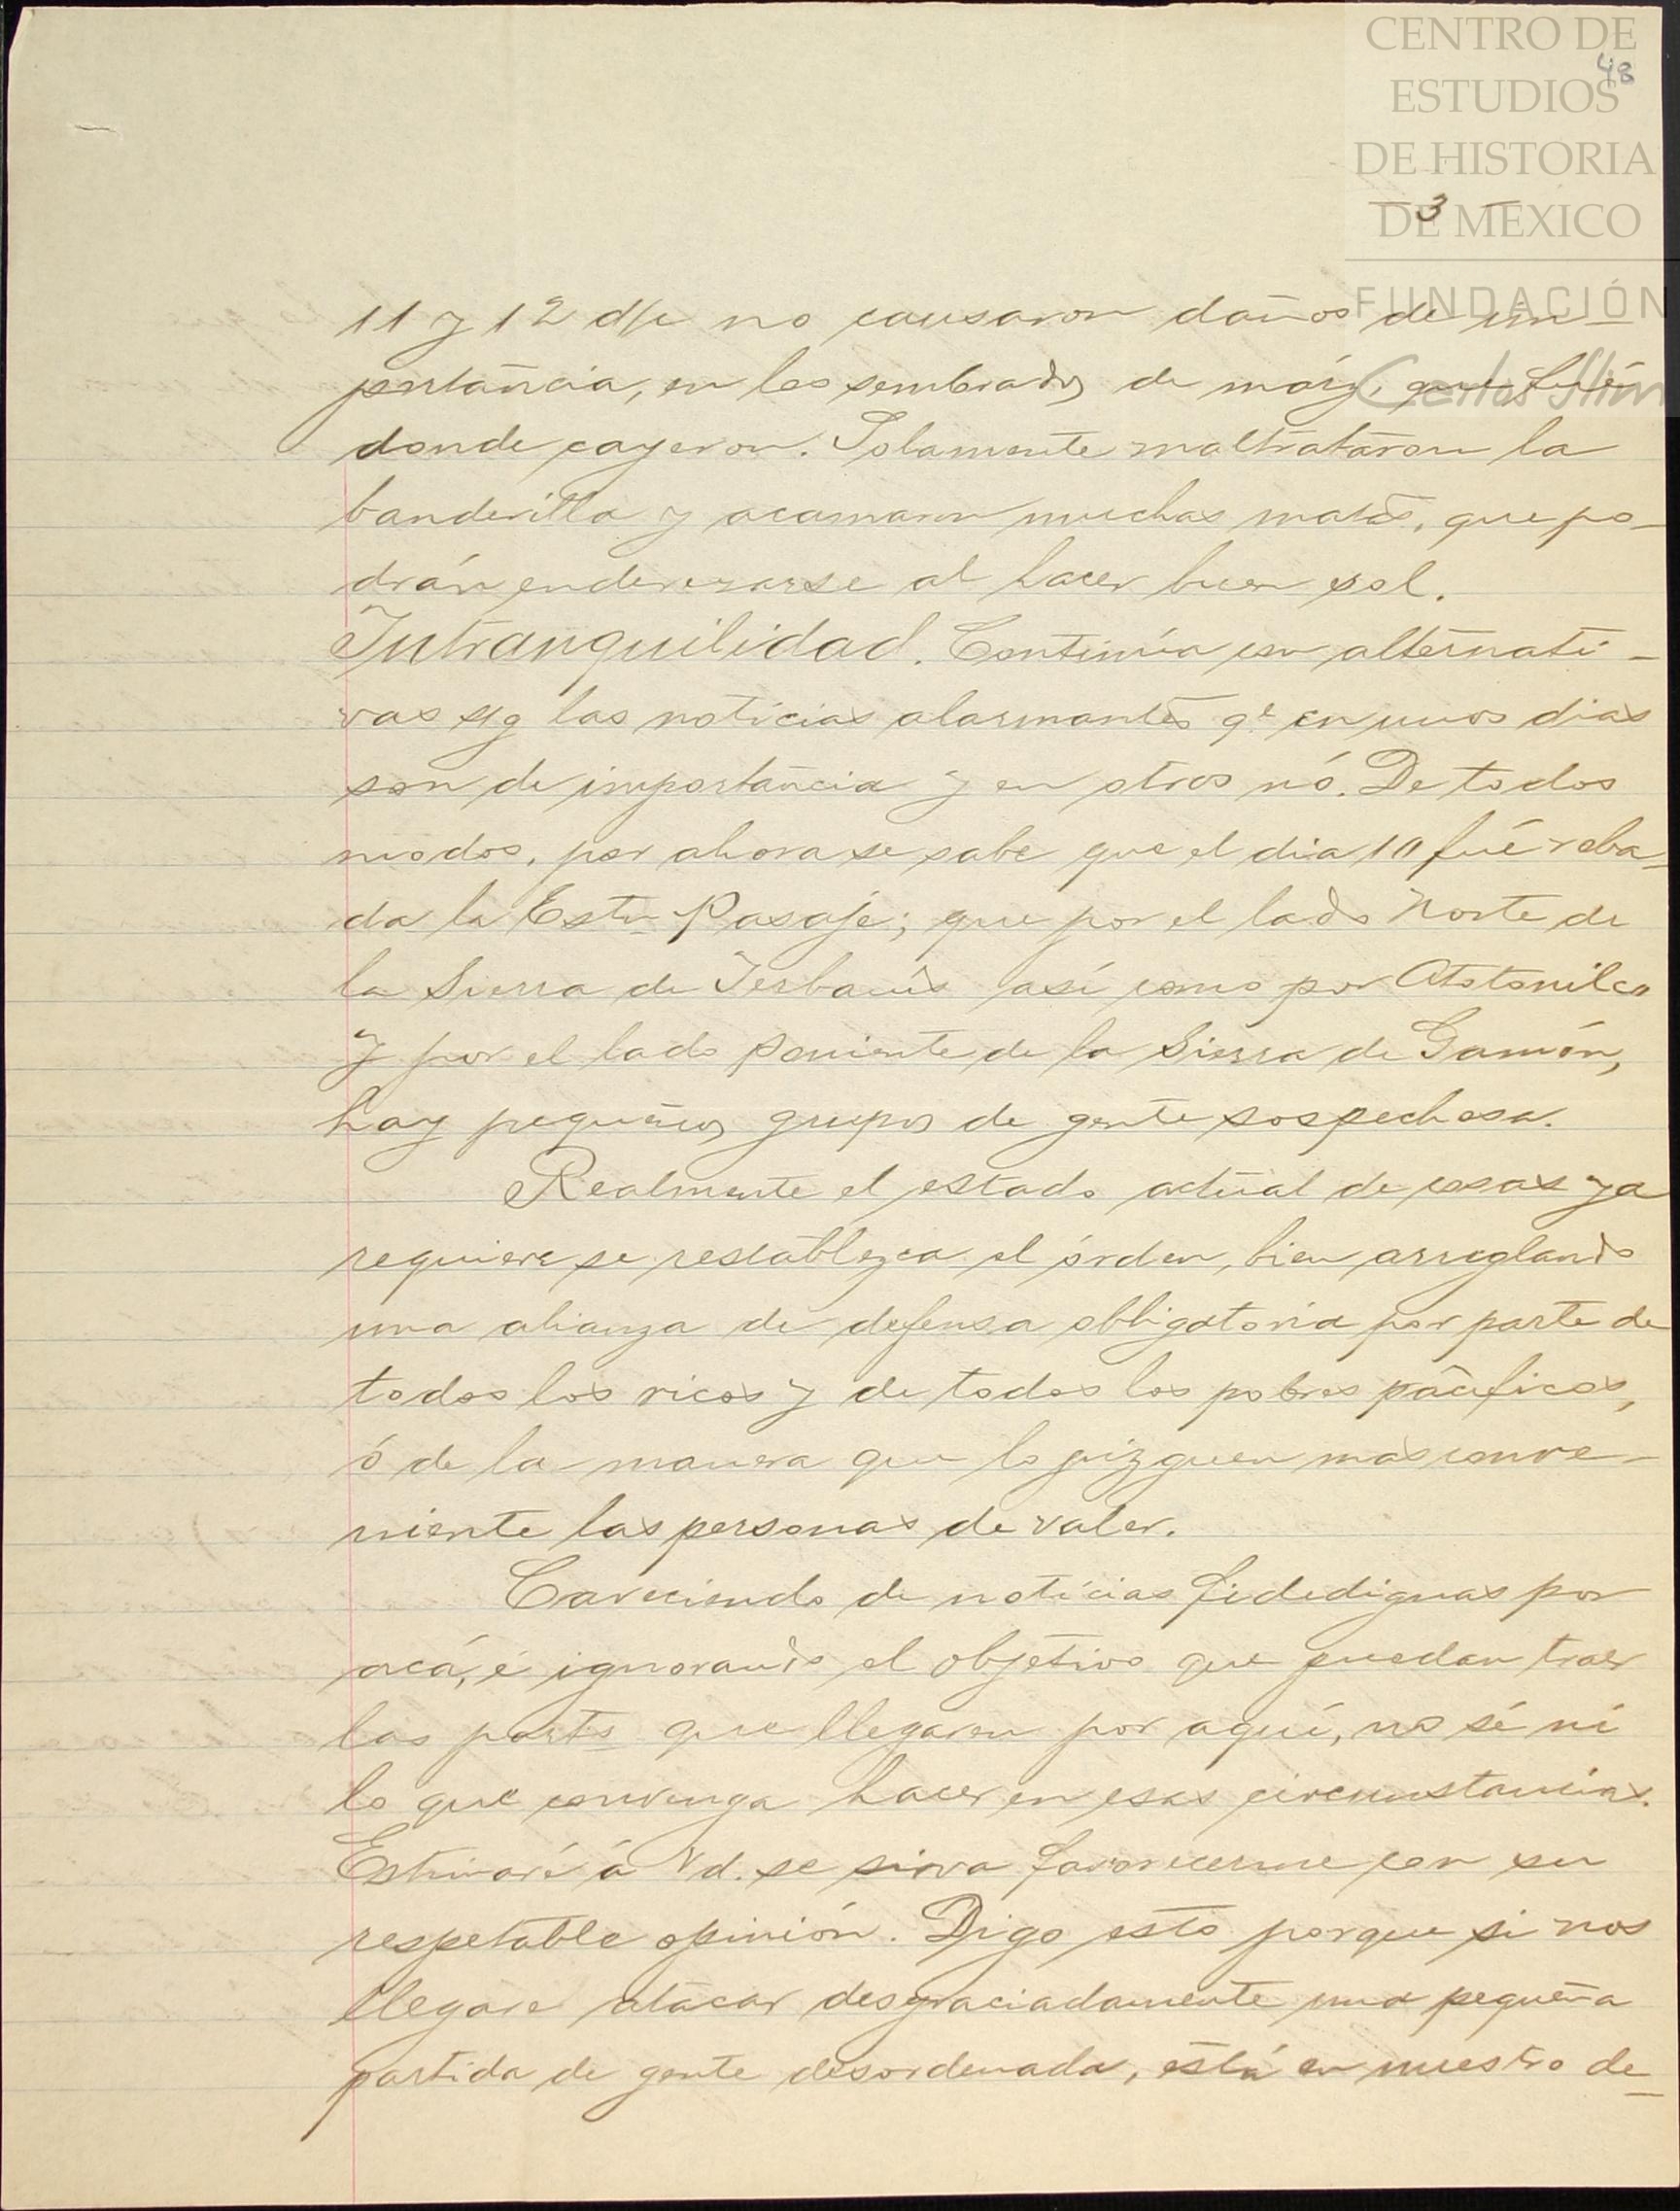 CENTRO DE
48
ESTUDIOS
DE HISTORIA
DE MEXICO
— 3 —
FUNDACIÓN
Carlos Slim
11 y 12 d/c no causaron daños de im-
portancia, en los sembrados de maíz, que fué
donde cayeron. Solamente maltrataron la
banderilla y acamaron muchas matas, que po-
drán enderezarse al hacer buen sol.
Intranquilidad. Continúa con alternati-
vas y las noticias alarmantes qe. en unos dias
son de importancia y en otros nó. De todos
modos, por ahora se sabe que el dia 10 fué roba-
da la Estn Pasaje; que por el lado Norte de
la Sierra de Yerbanís así como por Atotonilco
y por el lado Poniente de la Sierra de Gamón,
hay pequeños grupos de gente sospechosa.
Realmente el estado actual de cosas ya
requiere se restablezca el órden, bien arreglando
una alianza de defensa obligatoria por parte de
todos los ricos y de todos los pobres pacíficos,
ó de la manera que lo juzguen mas conve-
niente las personas de valer.
Careciendo de noticias fidedignas por
acá, é ignorando el objetivo que puedan traer
las parts que llegaren por aquí, no sé ni
lo que convenga hacer en esas circunstancias.
Estimaré á Vd. se sirva favorecerme con su
respetable opinión. Digo esto porque si nos
llegare atacar desgraciadamente una pequeña
partida de gente desordenada, está en nuestro de-